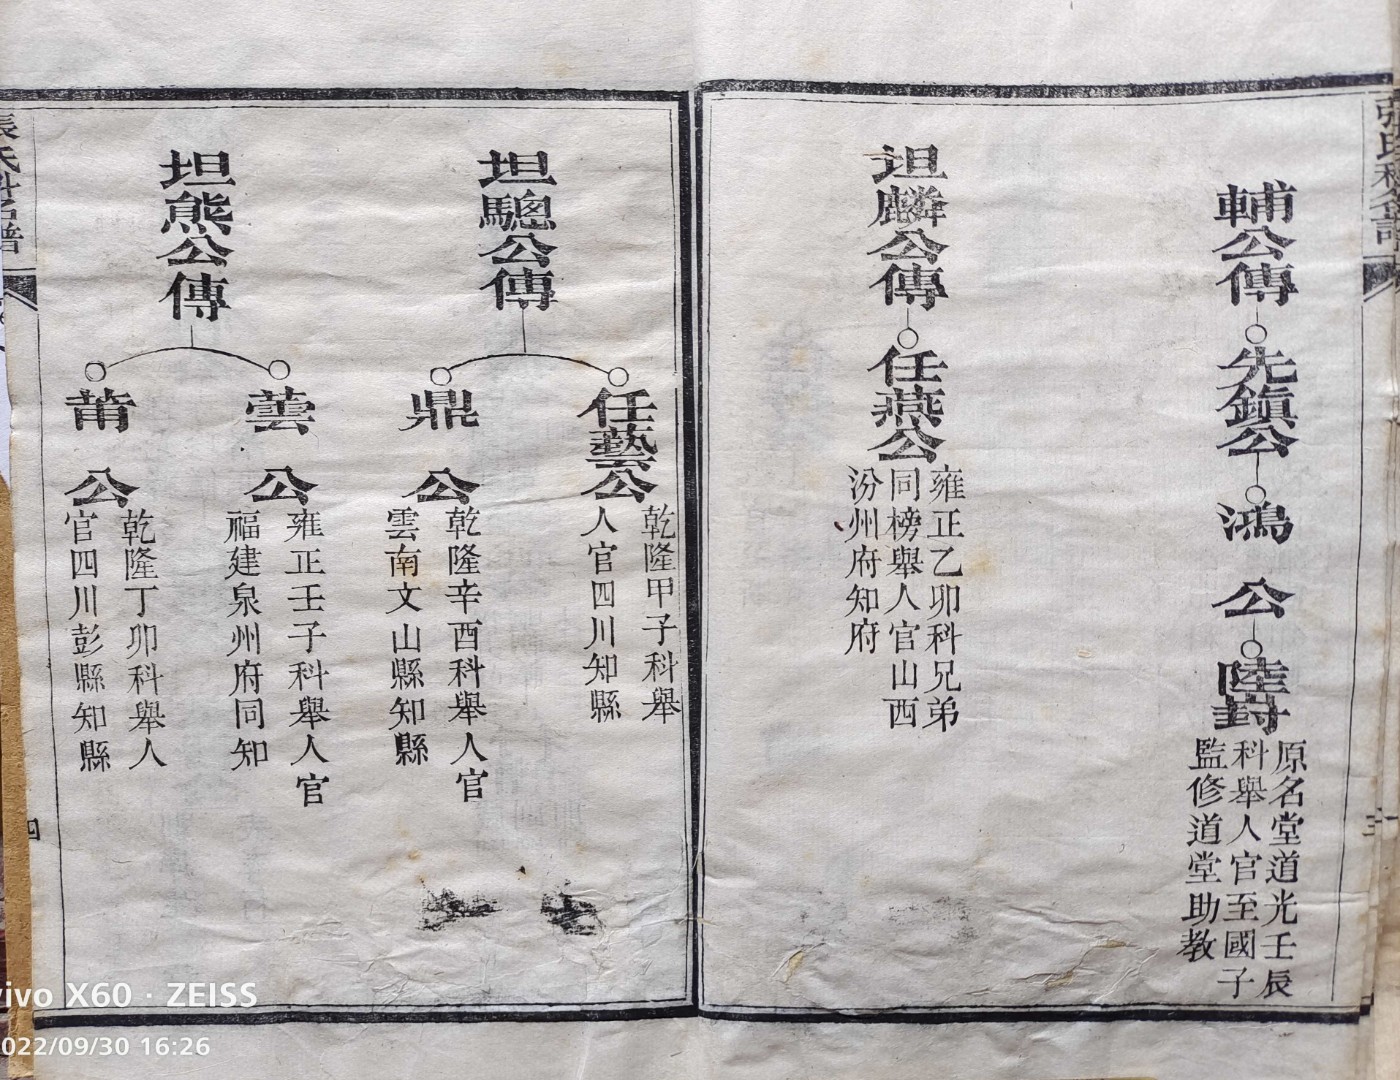 輔公傳
先鎮公
鴻公
陸封
原名堂道光壬辰
科舉人官至國子
監修道堂助教
坦麟公傳
任燕公
雍正乙卯科兄弟
同榜舉人官山西
汾州府知府
坦驄公傳
任藝公
乾隆甲子科舉
人官四川知縣
鼎公
乾隆辛酉科舉人官
雲南文山縣知縣
坦熊公傳
蕓公
雍正壬子科舉人官
福建泉州府同知
莆公
乾隆丁卯科舉人
官四川彭縣知縣
四
vivo X60 · ZEISS
2022/09/30 16:26